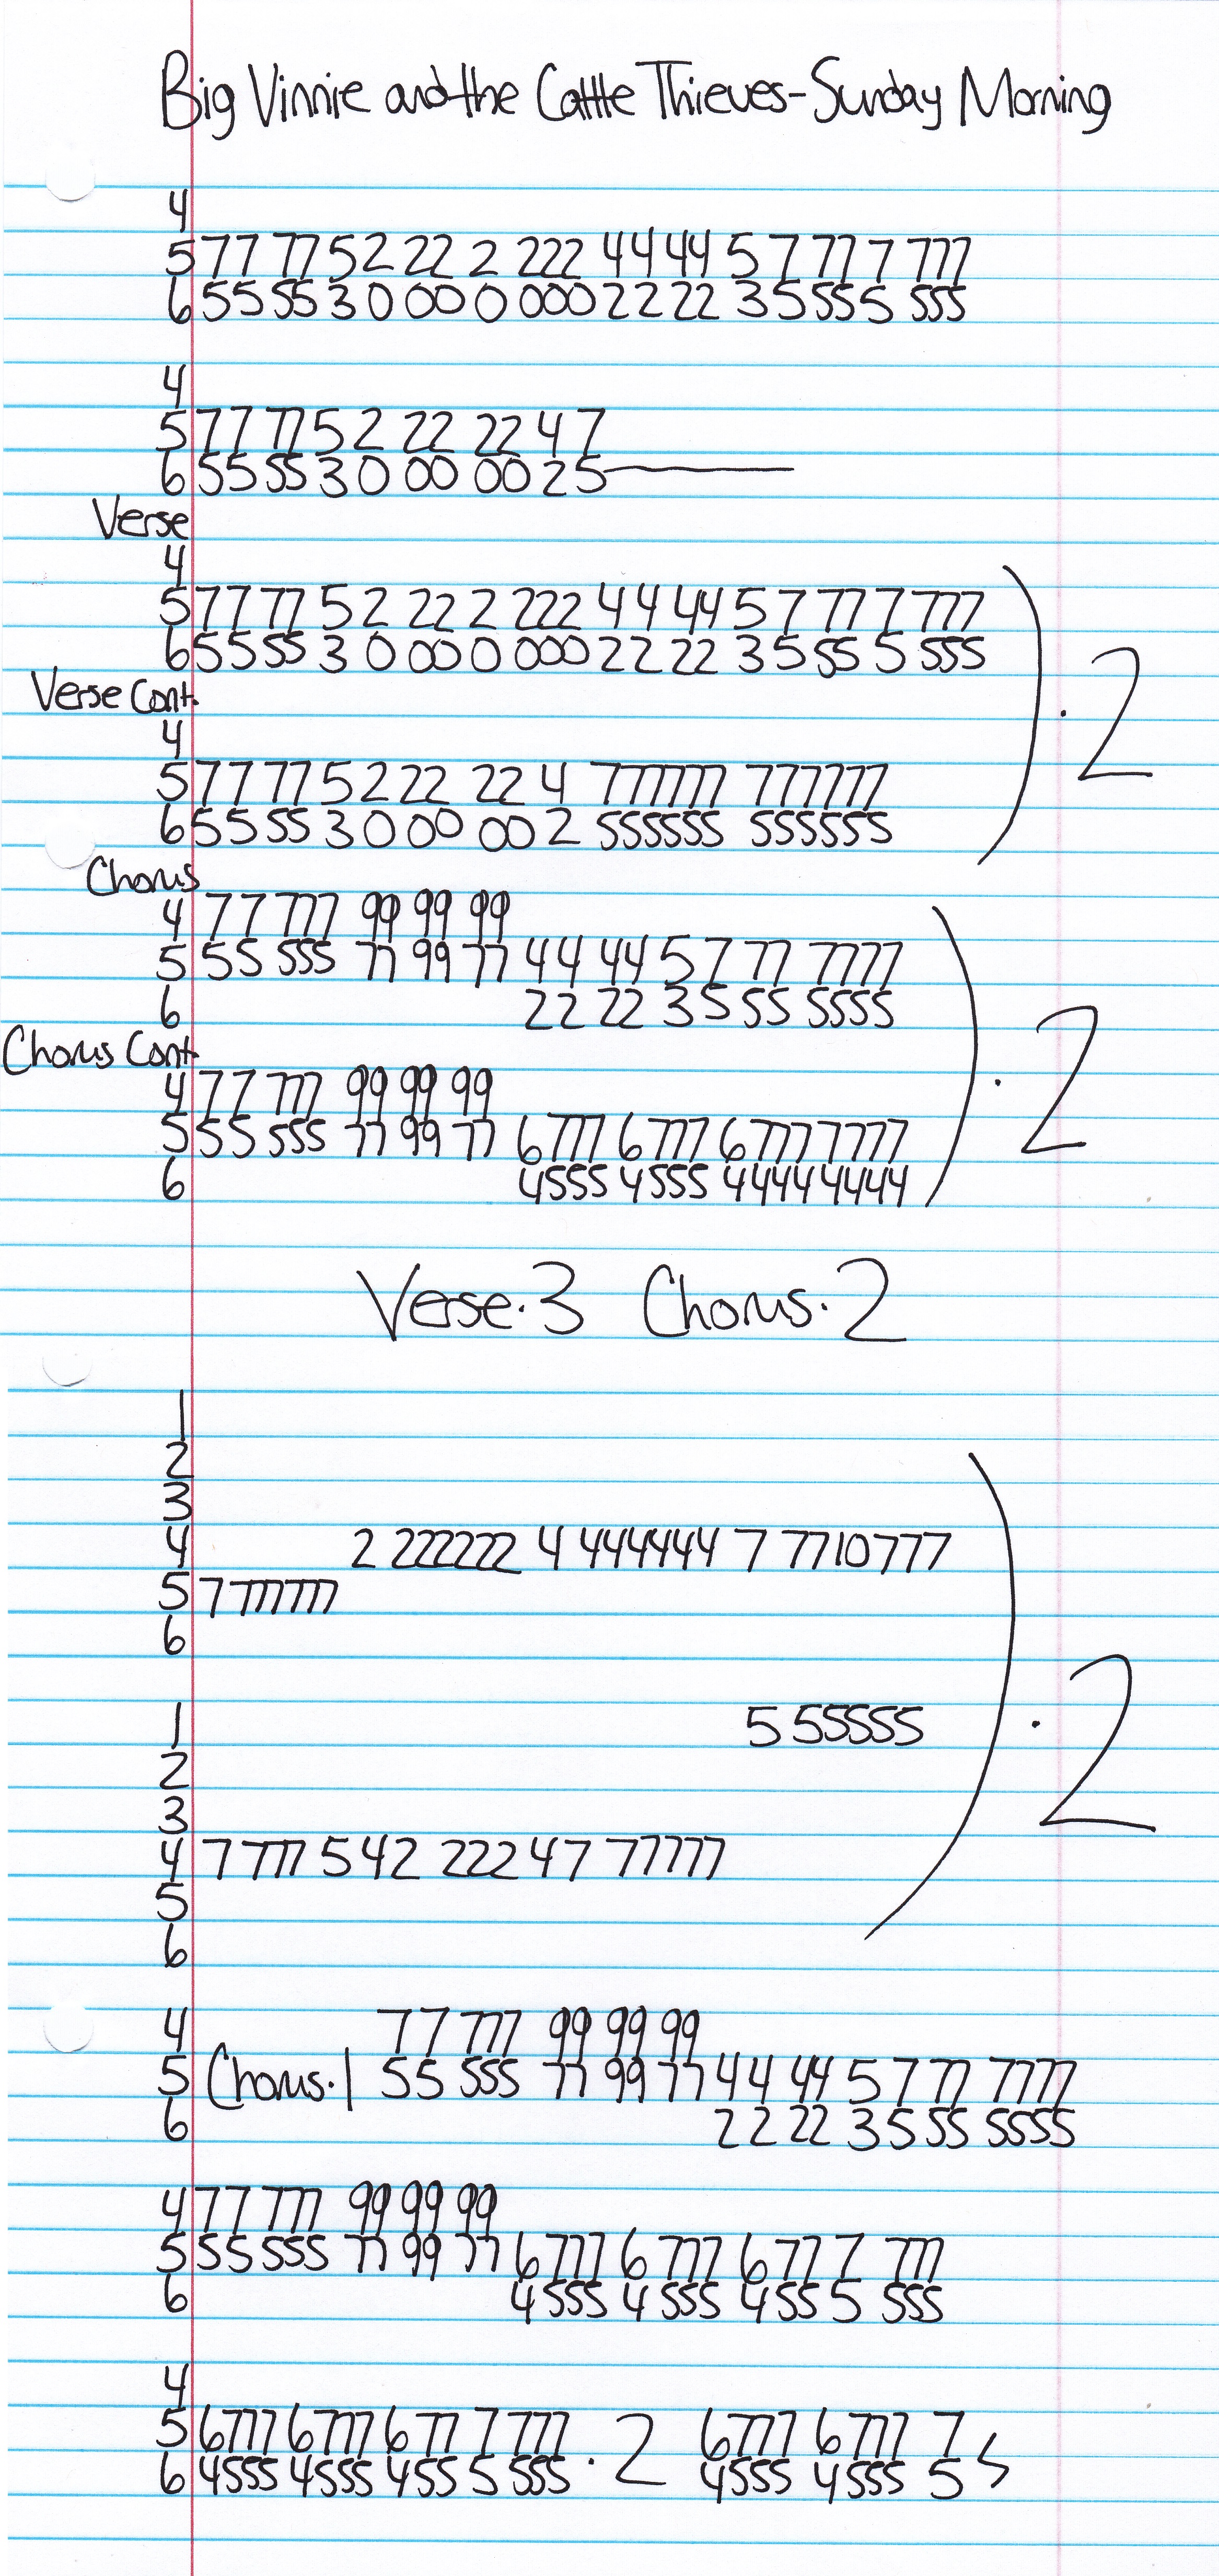 Big Vinnie and the Cattle Thieves-Sunday Morning
4
5 77 77 5 2 22 2 222 44 44 5 7 77 7 777
6 55 55 3 0 00 0 000 22 22 3 5 55 5 555
4
5 77 77 5 2 22 22 4 7
6 55 55 3 0 00 00 2 5
Verse
4
5 77 77 5 2 22 2 222 44 44 5 7 77 7 777
6 55 55 3 0 00 0 000 22 22 3 5 55 5 555
) · 2
Verse Cont.
4
5 77 77 5 2 22 22 4 777777 777777
6 55 55 3 0 00 00 2 555555 555555
Chorus
4 77 777 99 99 99
5 55 555 77 99 77 44 44 5 7 77 7777
6 22 22 3 5 55 5555
) · 2
Chorus Cont.
4 77 777 99 99 99
5 55 555 77 99 77 6777 6777 6777 7777
6 4555 4555 4444 4444
Verse · 3 Chorus · 2
1
2
3
4 2 222222 4 444444 7 7710777
5 7 777777
6
) · 2
1 5 55555
2
3
4 7 777 5 4 2 222 4 7 77777
5
6
4 77 777 99 99 99
5 Chorus · 1 55 555 77 99 77 44 44 5 7 77 7777
6 22 22 3 5 55 5555
4 77 777 99 99 99
5 55 555 77 99 77 6777 6 777 677 7 777
6 4555 4 555 455 5 555
4
5 6777 6777 677 7 777 · 2 6777 6 777 7
6 4555 4555 455 5 555 4555 4555 5